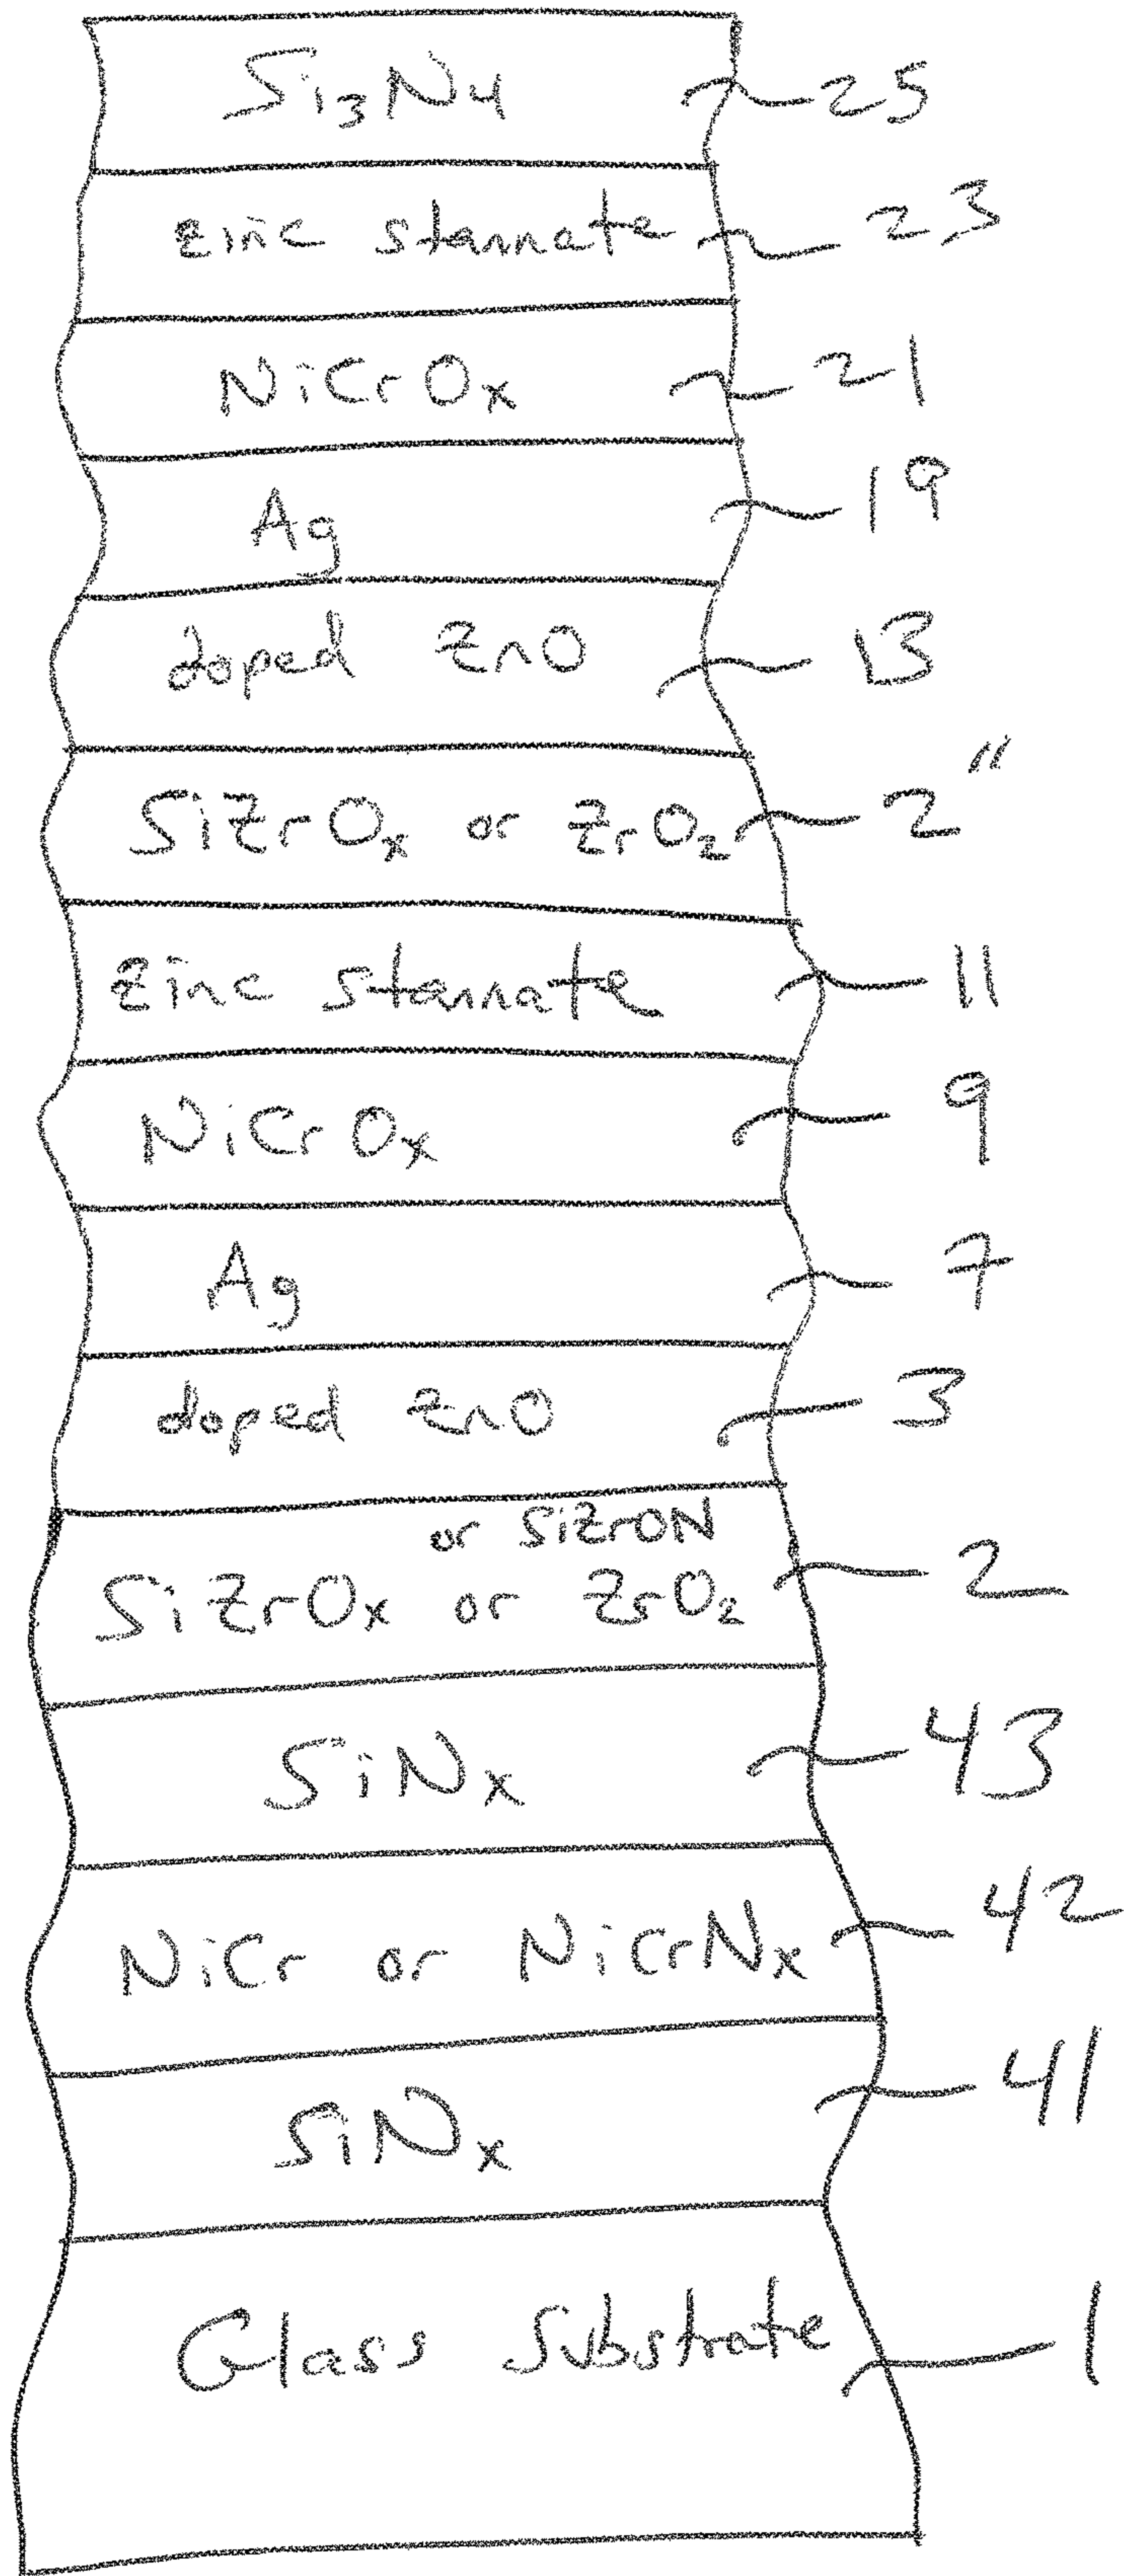 Si₃N₄ 25
zinc stannate 23
NiCrOₓ 21
Ag 19
doped ZnO 13
SiZrOₓ or ZrO₂ 2"
Zinc stannate 11
NiCrOₓ 9
Ag 7
doped ZnO 3
or SiZrON
SiZrOₓ or ZrO₂ 2
SiNₓ 43
NiCr or NiCrNₓ 42
SiNₓ 41
Glass Substrate 1